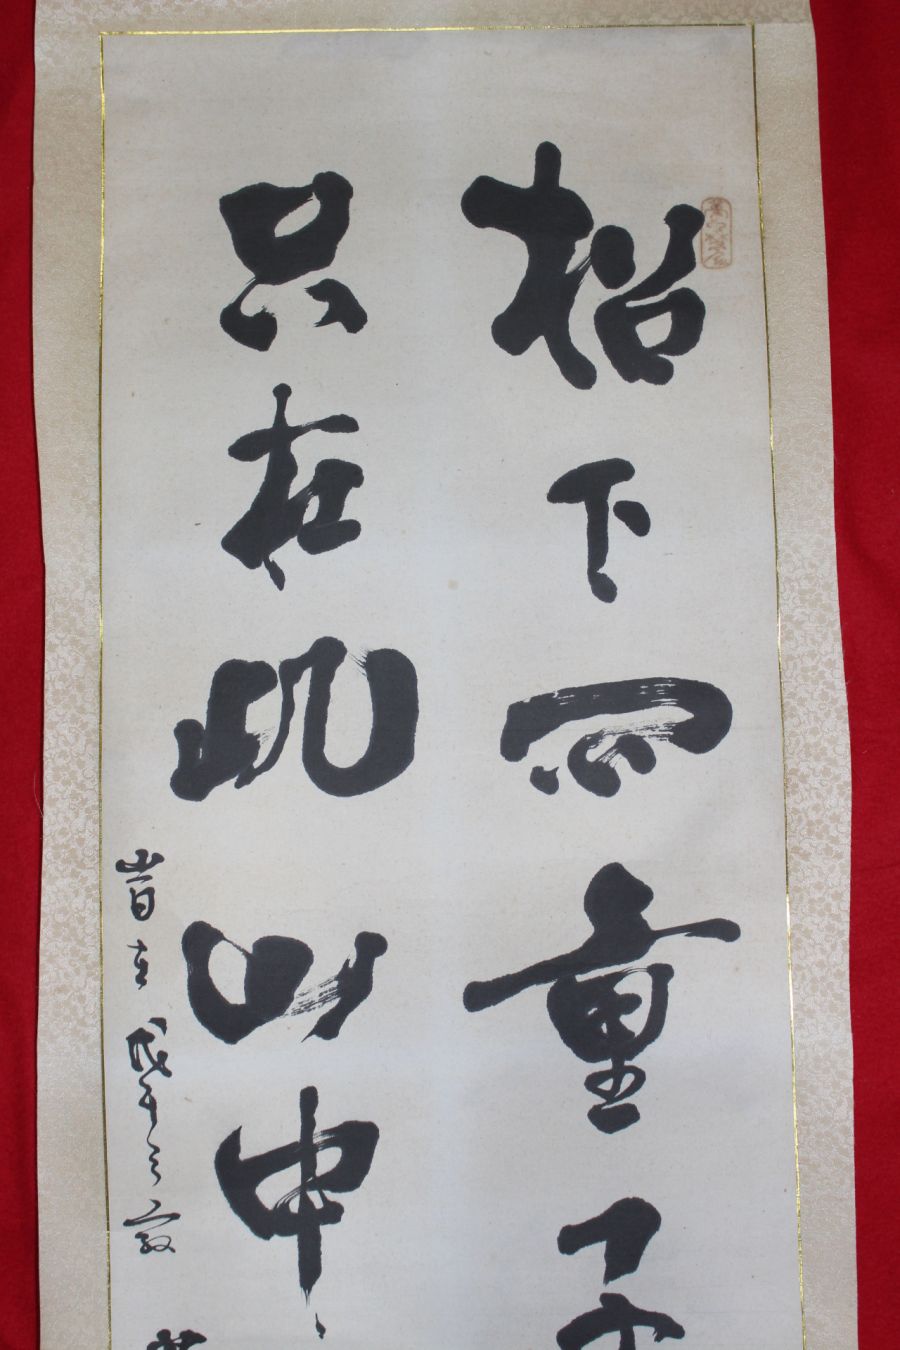 松下問童子
只在此山中
旹在戊午之